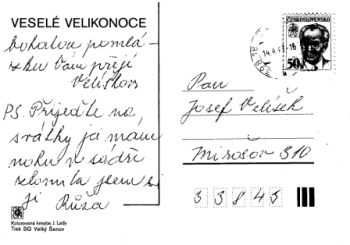 VESELÉ VELIKONOCE
bohatou pomlá-
zku Vám přejí
Velíškovi
P.S. Přijeďte na
svátky já mám
nohu v sádře
zlomila jsem si
ji Růža
Kolorovaná kresba J. Lady
Tisk SG Velký Šenov
ČESKOSLOVENSKO
50h
Pan
Josef Velíšek
Mirošov 310
33843